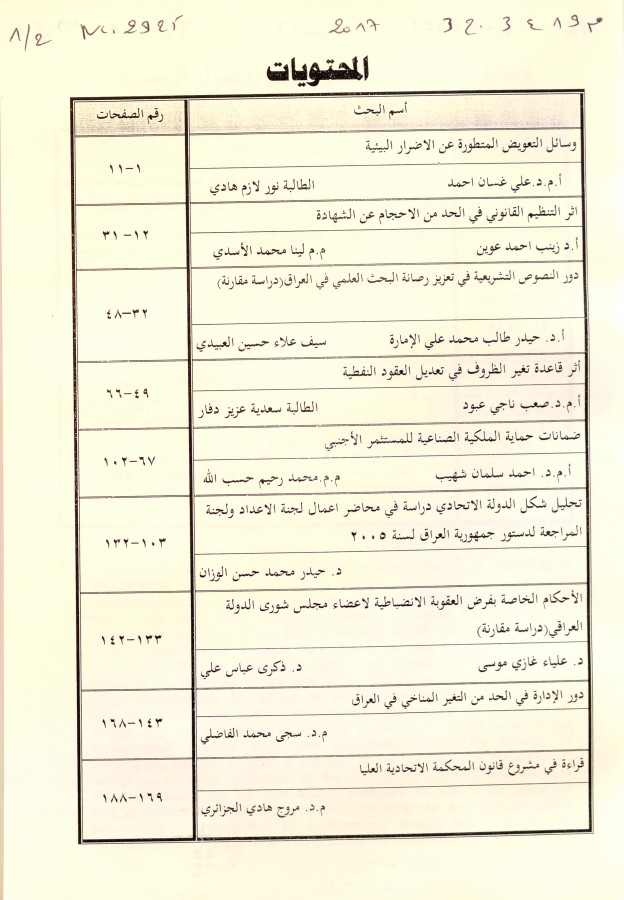 1/2 2017
المحتويات
أسم البحث رقم الصفحات
وسائل التعويض المتطورة عن الاضرار البيئية
أ.م.د.علي غسان احمد الطالبة نور لازم هادي
١-١١
اثر التنظيم القانوني في الحد من الاحجام عن الشهادة
أ.د زينب احمد عوين م.م لينا محمد الأسدي
١٢-٣١
دور النصوص التشريعية في تعزيز رصانة البحث العلمي في العراق(دراسة مقارنة)
أ.د. حيدر طالب محمد علي الإمارة سيف علاء حسين العبيدي
٣٢-٤٨
أثر قاعدة تغير الظروف في تعديل العقود النفطية
أ.م.د.صعب ناجي عبود الطالبة سعدية عزيز دفار
٤٩-٦٦
ضمانات حماية الملكية الصناعية للمستثمر الأجنبي
أ.م.د. احمد سلمان شهيب م.م.محمد رحيم حسب الله
٦٧-١٠٢
تحليل شكل الدولة الاتحادي دراسة في محاضر اعمال لجنة الاعداد ولجنة
المراجعة لدستور جمهورية العراق لسنة ٢٠٠٥
د. حيدر محمد حسن الوزان
١٠٣-١٣٢
الأحكام الخاصة بفرض العقوبة الانضباطية لاعضاء مجلس شورى الدولة
العراقي(دراسة مقارنة)
د. علياء غازي موسى د. ذكرى عباس علي
١٣٣-١٤٢
دور الإدارة في الحد من التغير المناخي في العراق
م.د. سجى محمد الفاضلي
١٤٣-١٦٨
قراءة في مشروع قانون المحكمة الاتحادية العليا
م.د. مروج هادي الجزائري
١٦٩-١٨٨